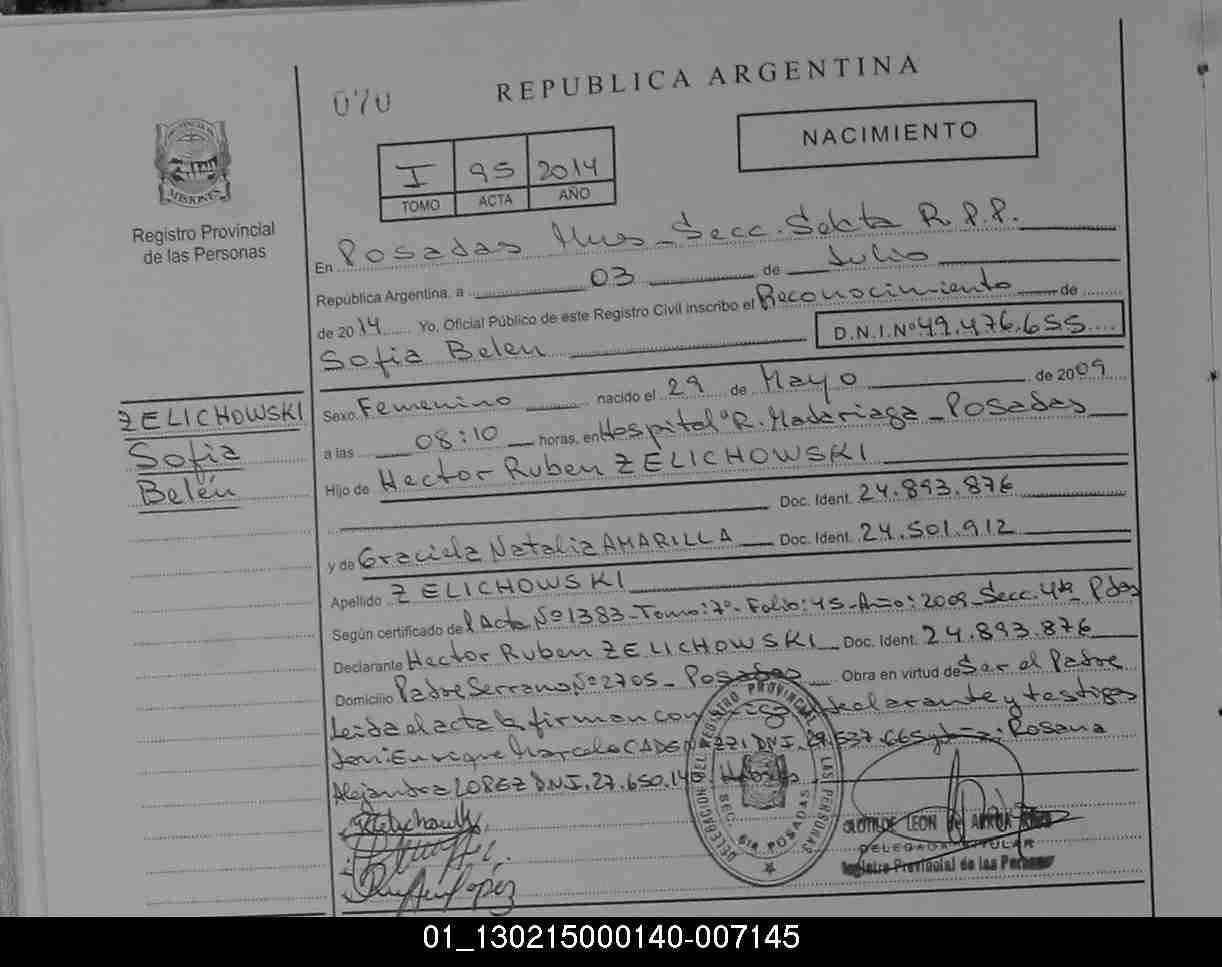 070
REPUBLICA ARGENTINA
NACIMIENTO
I 95 2014
TOMO ACTA AÑO
PROVINCIA DE
MISIONES
Registro Provincial
de las Personas
En Posadas Mnes - Secc. Sexta R.P.P.
República Argentina, a 03 de Julio
de 2014 Yo, Oficial Público de este Registro Civil inscribo el Reconocimiento de
Sofia Belen D.N.I.Nº 49.476.655
ZELICHOWSKI
Sofia
Belén
Sexo Femenino nacido el 29 de Mayo de 2009
a las 08:10 horas, en Hospital R. Madariaga - Posadas
Hijo de Hector Ruben ZELICHOWSKI
Doc. Ident. 24.893.876
y de Graciela Natalia AMARILLA Doc. Ident. 24.501.912
Apellido ZELICHOWSKI
Según certificado del Acta Nº 1383 - Tomo: 7º - Folio: 45 - Año: 2009 - Secc. 4ta Pdas
Declarante Hector Ruben ZELICHOWSKI Doc. Ident. 24.893.876
Domicilio Padre Serrano Nº 2705 - Posadas Obra en virtud de Ser el Padre
Leida el acta la firman con declarante y testigos
Enrique Marcelo DNI. Rosana
Alejandra LOPEZ DNI. 27.650.14
DELEGACION DEL REGISTRO PROVINCIAL LAS PERSONAS
SEC. 6ta POSADAS
CLOTILDE LEON
DELEGADA TITULAR
Registro Provincial de las Personas
01_130215000140-007145